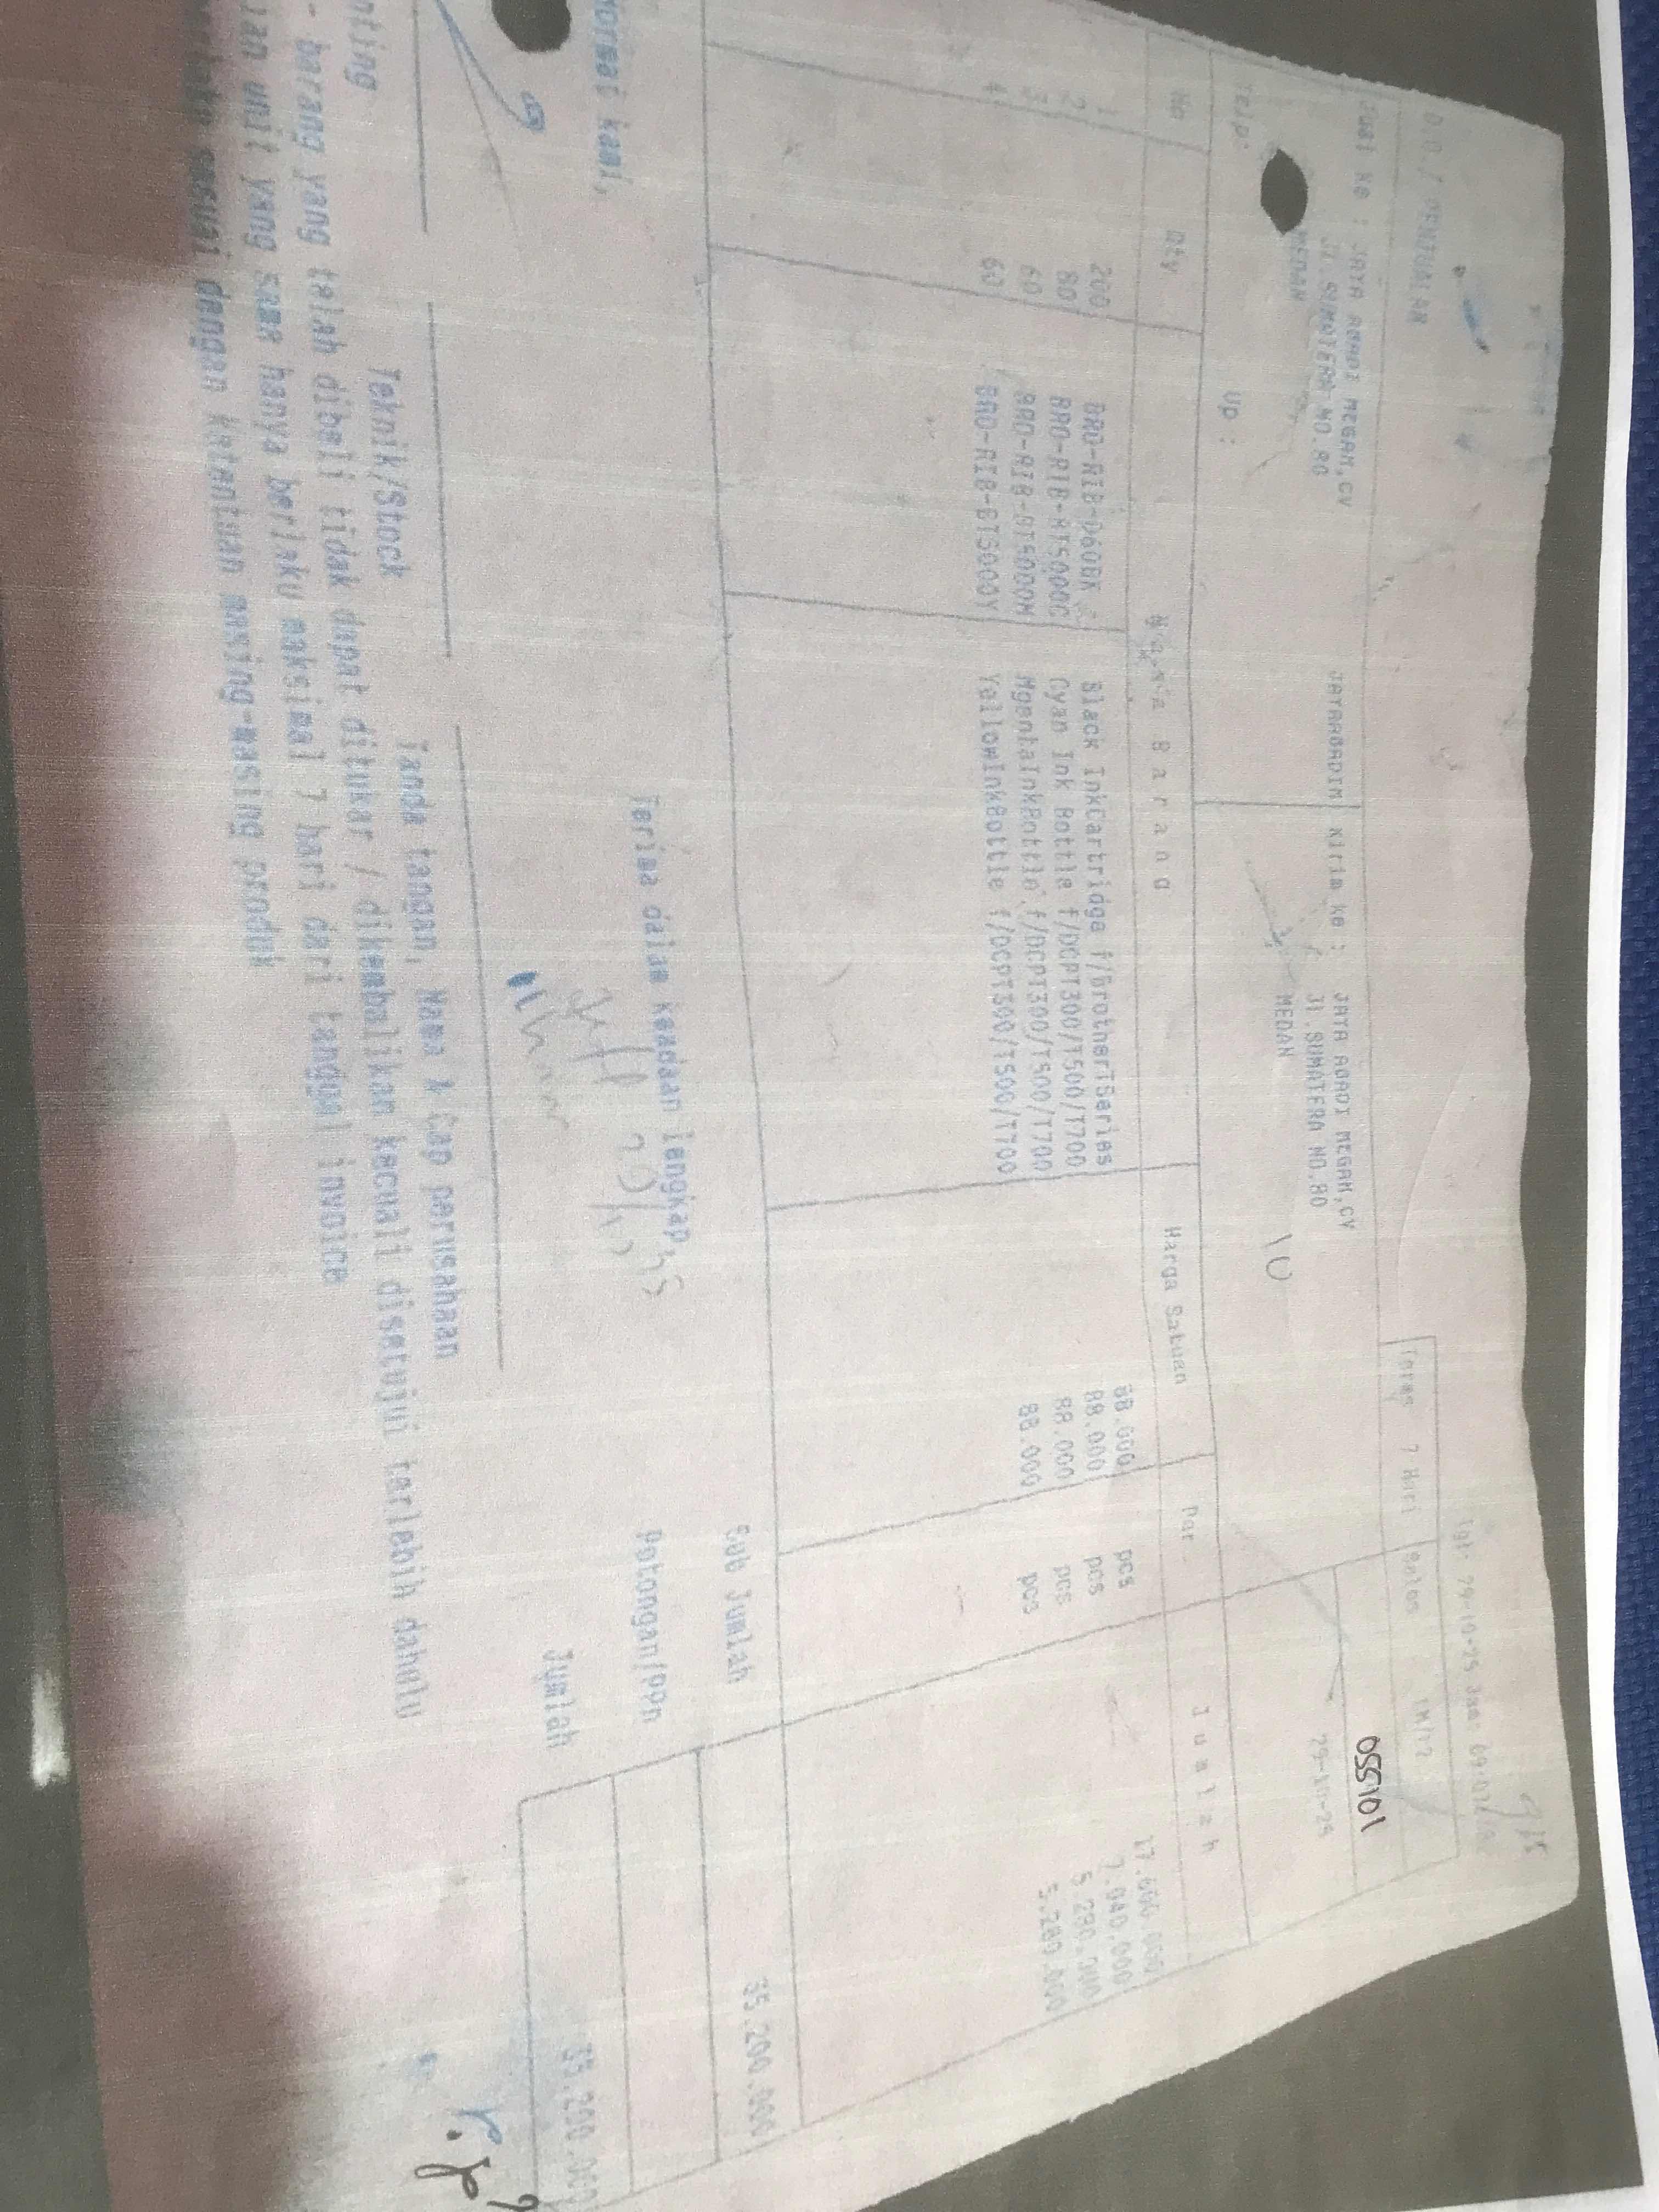 D.O./ PENJUALAN
Tgl: 29-10-25 Jam: 09:07
Terms 7 Hari Sales
055101
29-10-25
Jual ke : JAYA ABADI MEGAH,CV JAYAABADIM
Jl.SUMATERA NO.80
MEDAN
Kirim ke : JAYA ABADI MEGAH,CV
Jl.SUMATERA NO.80
MEDAN
10
Telp: Up :
No Qty N a m a B a r a n g Harga Satuan Per J u m l a h
1 200 BRO-RIB-D60BK Black InkCartridge f/BrotherTSeries 88.000 pcs 17.600.000
2 80 BRO-RIB-BT5000C Cyan Ink Bottle f/DCPT300/T500/T700 88.000 pcs 7.040.000
3 60 BRO-RIB-BT5000M MgentaInkBottle f/DCPT300/T500/T700 88.000 pcs 5.280.000
4 60 BRO-RIB-BT5000Y YellowInkBottle f/DCPT300/T500/T700 88.000 pcs 5.280.000
Sub Jumlah 35.200.000
Potongan/Ppn
Jumlah 35.200.000
Hormat kami,
Terima dalam keadaan lengkap,
Teknik/Stock
Tanda tangan, Nama & Cap perusahaan
nting
- barang yang telah dibeli tidak dapat ditukar / dikembalikan kecuali disetujui terlebih dahulu
ian unit yang sama hanya berlaku maksimal 7 hari dari tanggal invoice
sesuai dengan ketentuan masing-masing produk